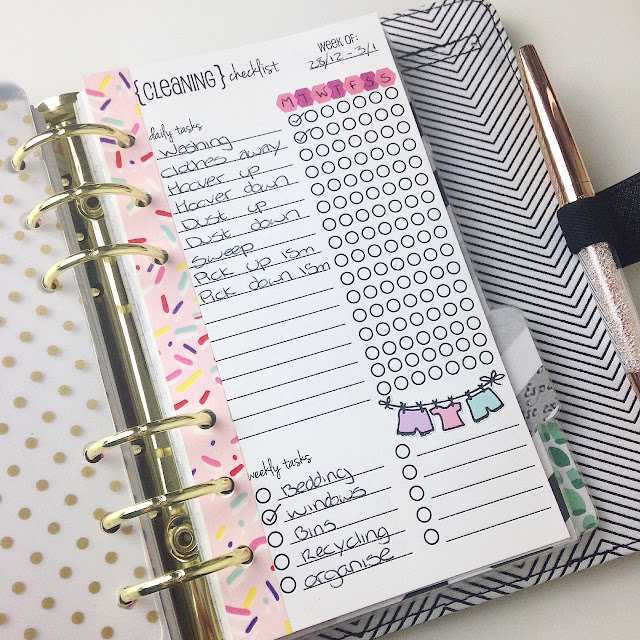 {CLEANING} checklist
WEEK OF:
28/12 - 3/1
M T W T F S S
daily tasks
Washing
Clothes away
Hoover up
Hoover down
Dust up
Dust down
Sweep
Pick up 15m
Pick down 15m
weekly tasks
Bedding
Windows
Bins
Recycling
organise